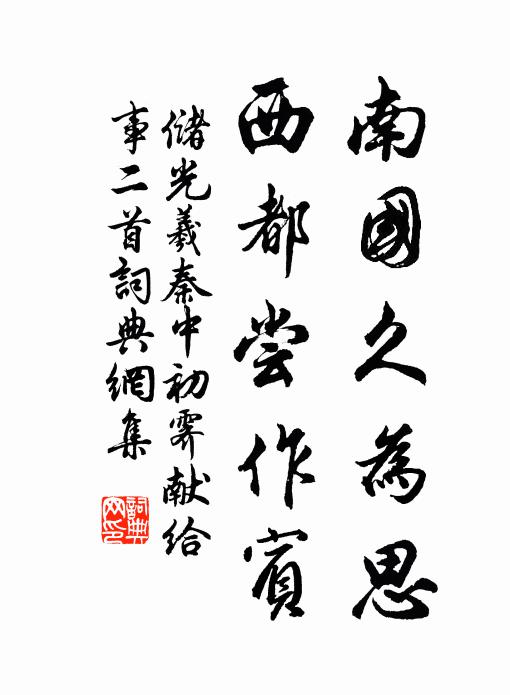 南國久為思
西都尝作賓
儲光羲秦中初霽献给
事二首詞典網集
詞典
网印